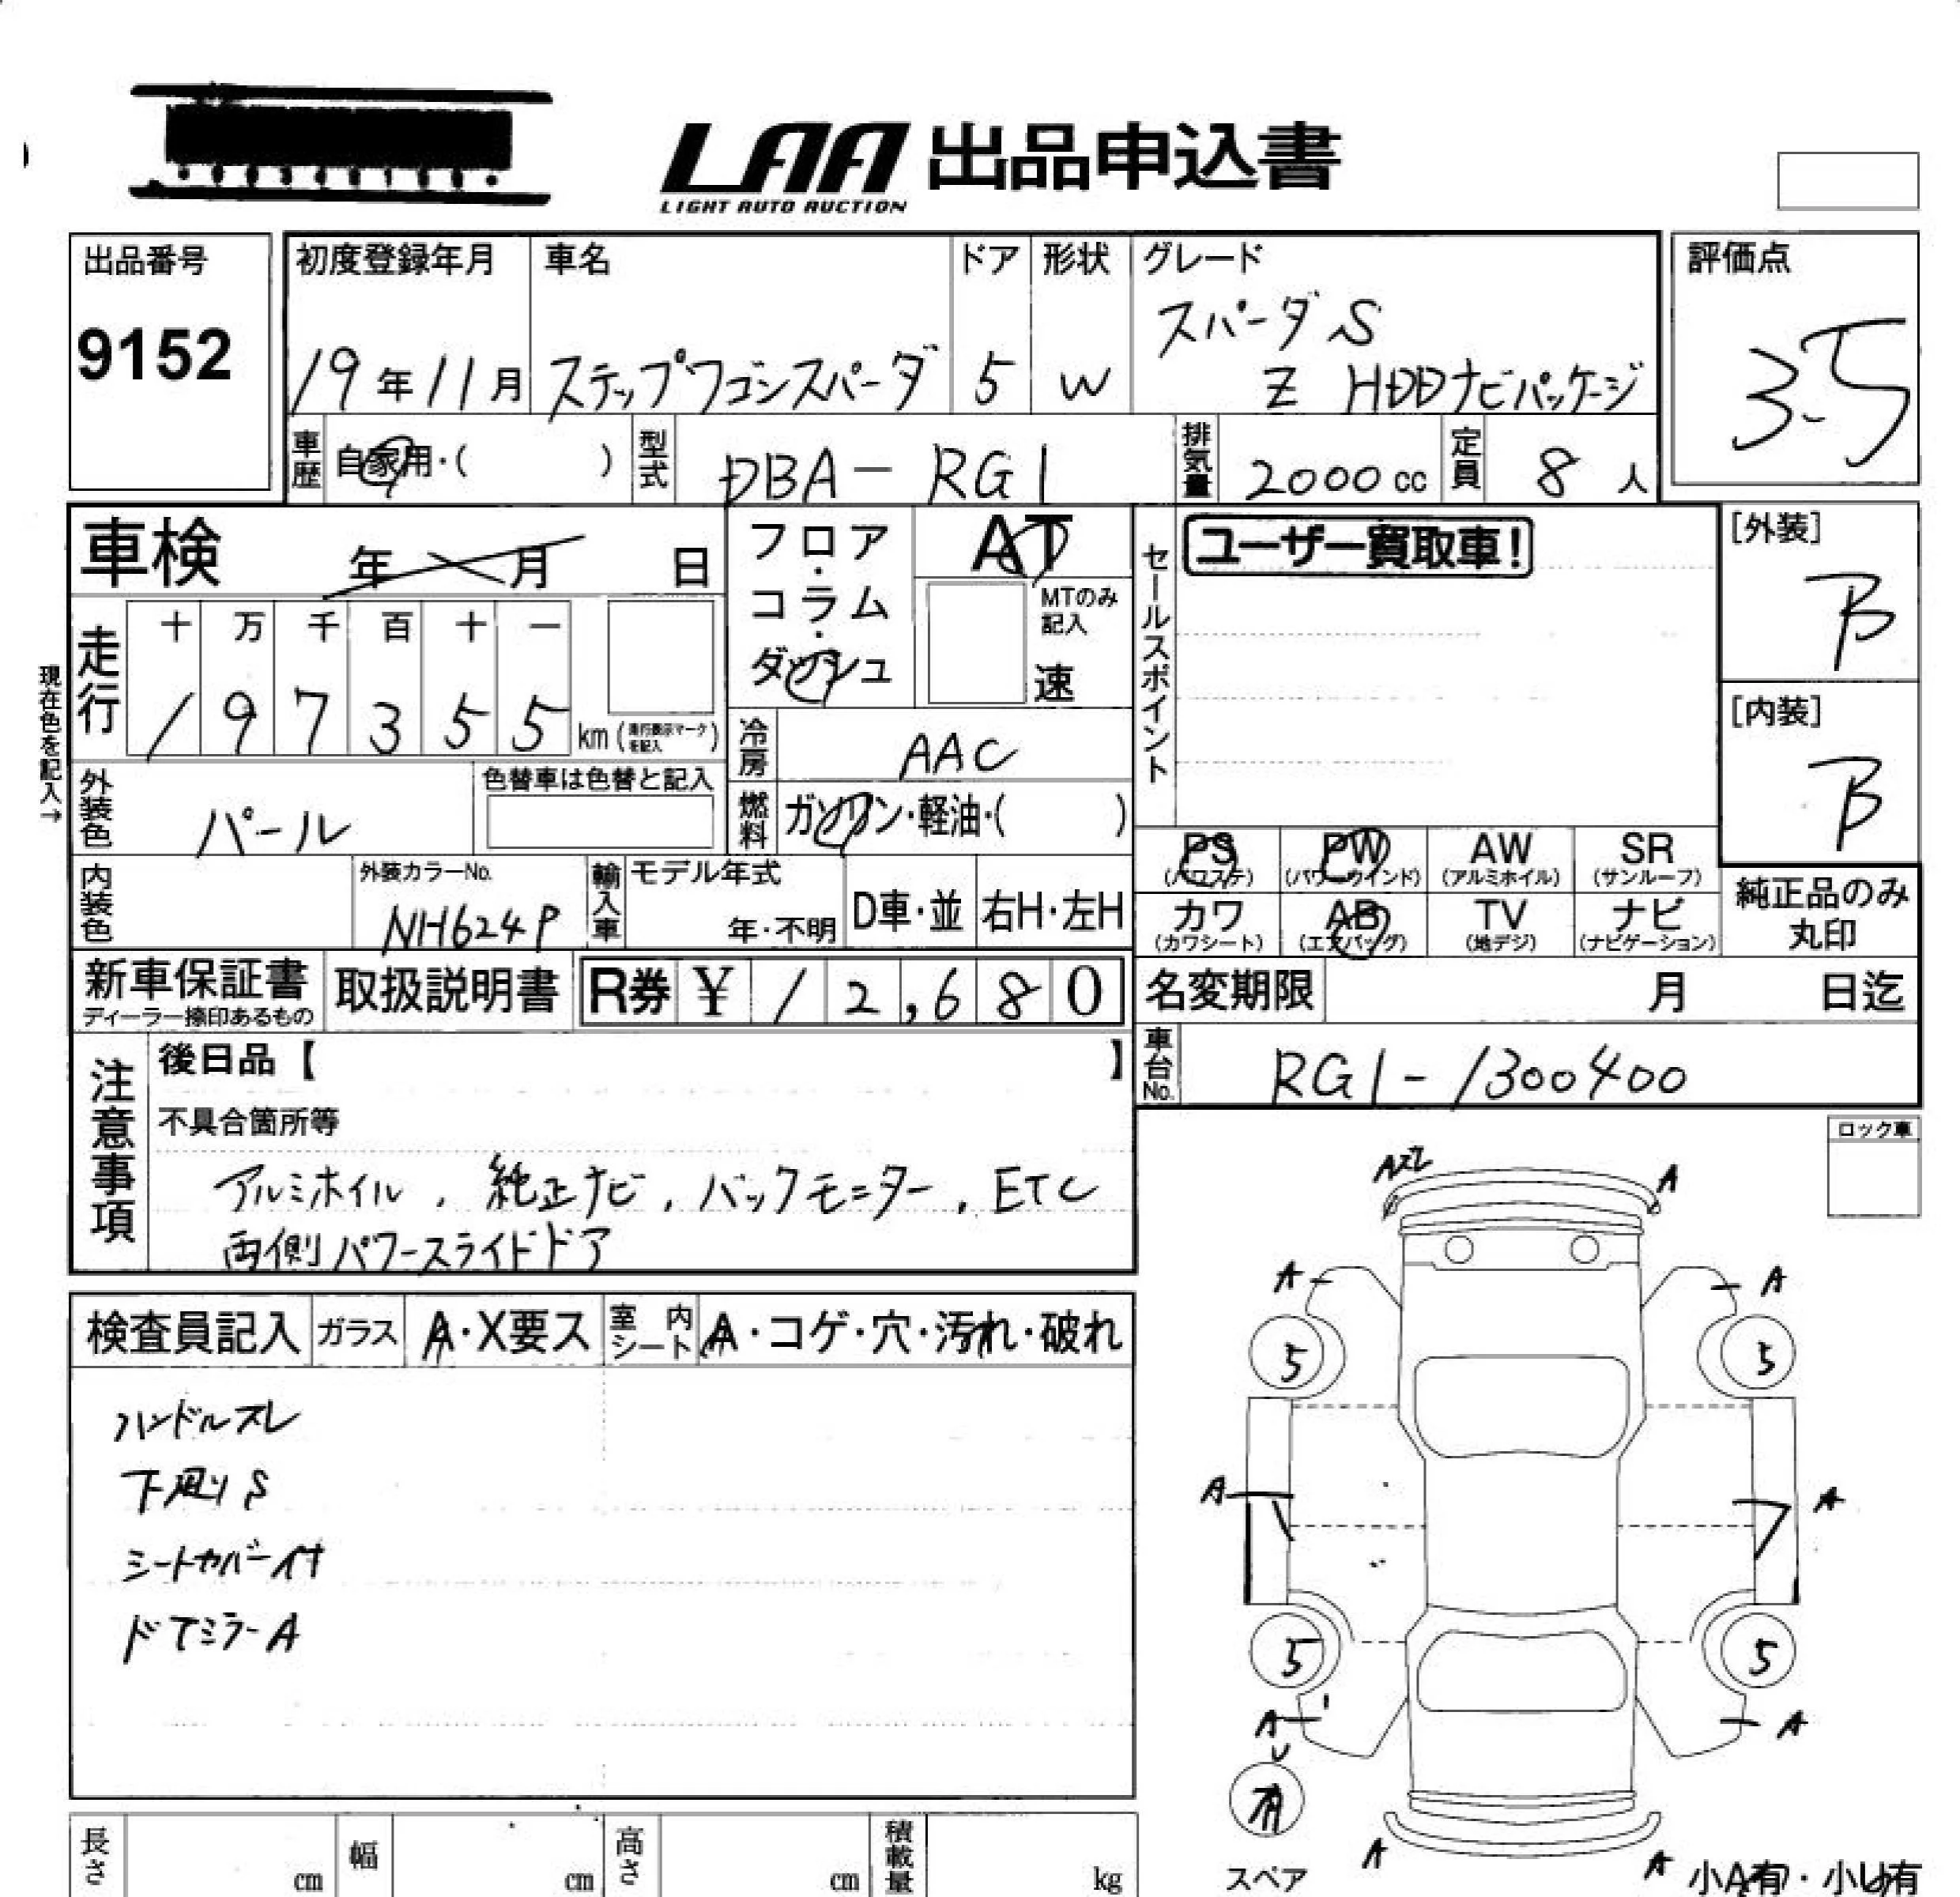 LAA 出品申込書
LIGHT AUTO AUCTION
出品番号
9152
初度登録年月
19年11月
車名
ステップワゴンスパーダ
ドア
5
形状
W
グレード
スパーダ S
Z HDDナビパッケージ
評価点
3.5
車歴
自家用・( )
型式
DBA-RG1
排気量
2000 cc
定員
8 人
車検 年 月 日
フロア・コラム・ダッシュ
AT
MTのみ記入
速
セールスポイント
ユーザー買取車!
[外装]
B
[内装]
B
現在色を記入→
走行
十 万 千 百 十 一
1 9 7 3 5 5 km (走行表示マークを記入)
冷房
AAC
外装色
パール
色替車は色替と記入
燃料
ガソリン・軽油・( )
PS (パワステ)
PW (パワーウインド)
AW (アルミホイル)
SR (サンルーフ)
カワ (カワシート)
AB (エアバッグ)
TV (地デジ)
ナビ (ナビゲーション)
純正品のみ
丸印
内装色
外装カラーNo.
NH624P
輸入車
モデル年式
年・不明
D車・並
右H・左H
新車保証書
ディーラー捺印あるもの
取扱説明書
R券 ¥ 12,680
名変期限 月 日迄
車台No.
RG1-1300400
注意事項
後日品【 】
不具合箇所等
アルミホイル, 純正ナビ, バックモニター, ETC
両側パワースライドドア
ロック車
検査員記入
ガラス
A・X要ス
室内シート
A・コゲ・穴・汚れ・破れ
ハンドルスレ
下廻りS
シートカバー付
ドアミラーA
A
A
A
5
5
A
A
5
5
A
U
A
有
スペア
A
A
小A有・小U有
長さ cm
幅 cm
高さ cm
積載量 kg